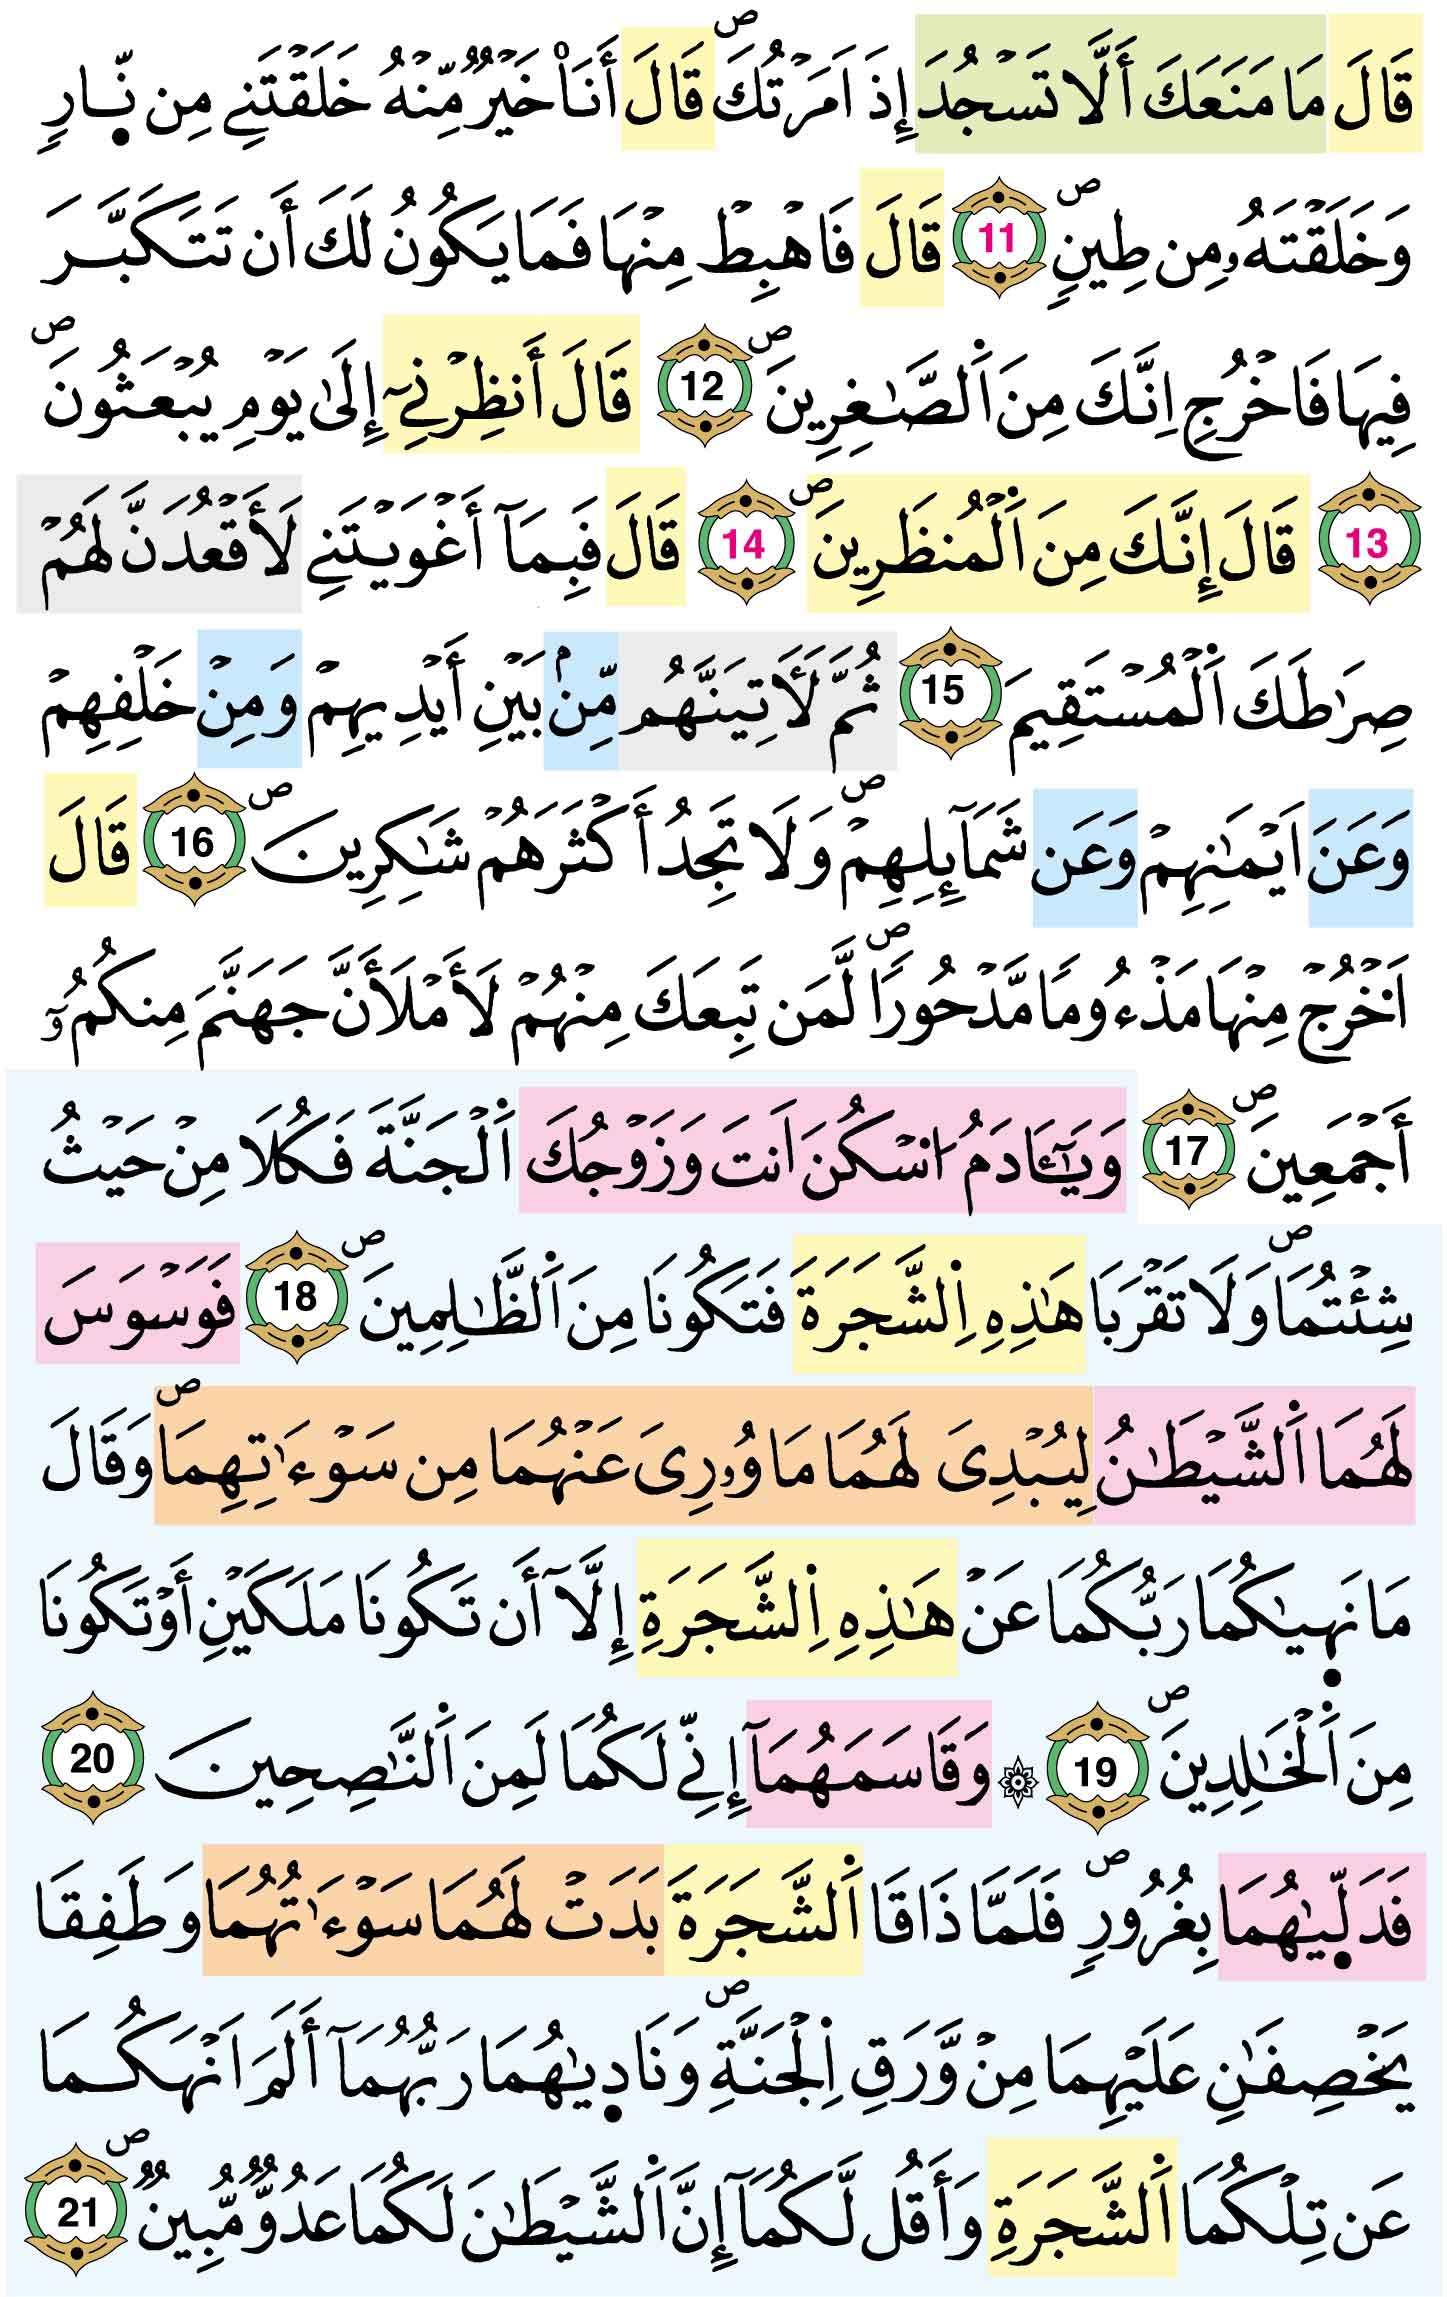 قَالَ مَا مَنَعَكَ أَلَّا تَسْجُدَ إِذَ اَمَرْتُكَۖ قَالَ أَنَا۠ خَيْرٌ مِّنْهُ خَلَقْتَنِے مِن نّ۪ارٍ
وَخَلَقْتَهُۥ مِن طِينٍۖ 11 قَالَ فَاهْبِطْ مِنْهَا فَمَا يَكُونُ لَكَ أَن تَتَكَبَّرَ
فِيهَا فَاخْرُجِ اِنَّكَ مِنَ اَ۬لصَّٰغِرِينَۖ 12 قَالَ أَنظِرْنِےٓ إِلَىٰ يَوْمِ يُبْعَثُونَۖ
13 قَالَ إِنَّكَ مِنَ اَ۬لْمُنظَرِينَۖ 14 قَالَ فَبِمَآ أَغْوَيْتَنِے لَأَقْعُدَنَّ لَهُمْ
صِرَٰطَكَ اَ۬لْمُسْتَقِيمَ 15 ثُمَّ لَأَتِيَنَّهُم مِّنۢ بَيْنِ أَيْدِيهِمْ وَمِنْ خَلْفِهِمْ
وَعَنَ اَيْمَٰنِهِمْ وَعَن شَمَآئِلِهِمْۖ وَلَا تَجِدُ أَكْثَرَهُمْ شَٰكِرِينَۖ 16 قَالَ
اَخْرُجْ مِنْهَا مَذْءُوماٗ مَّدْحُوراٗۖ لَّمَن تَبِعَكَ مِنْهُمْ لَأَمْلَأَنَّ جَهَنَّمَ مِنكُمُۥٓ
أَجْمَعِينَۖ 17 وَيَٰٓـَٔادَمُ اُ۟سْكُنَ اَنتَ وَزَوْجُكَ اَ۬لْجَنَّةَ فَكُلَا مِنْ حَيْثُ
شِئْتُمَاۖ وَلَا تَقْرَبَا هَٰذِهِ اِ۬لشَّجَرَةَ فَتَكُونَا مِنَ اَ۬لظَّٰلِمِينَۖ 18 فَوَسْوَسَ
لَهُمَا اَ۬لشَّيْطَٰنُ لِيُبْدِىَ لَهُمَا مَا وُۥرِىَ عَنْهُمَا مِن سَوْءَٰتِهِمَاۖ وَقَالَ
مَا نَه۪يٰكُمَا رَبُّكُمَا عَنْ هَٰذِهِ اِ۬لشَّجَرَةِ إِلَّآ أَن تَكُونَا مَلَكَيْنِ أَوْ تَكُونَا
مِنَ اَ۬لْخَٰلِدِينَۖ 19 ۞ وَقَاسَمَهُمَآ إِنِّے لَكُمَا لَمِنَ اَ۬لنَّٰصِحِينَ 20
فَدَلّ۪يٰهُمَا بِغُرُورٍۖ فَلَمَّا ذَاقَا اَ۬لشَّجَرَةَ بَدَتْ لَهُمَا سَوْءَٰتُهُمَا وَطَفِقَا
يَخْصِفَٰنِ عَلَيْهِمَا مِنْ وَّرَقِ اِ۬لْجَنَّةِۖ وَنَاد۪يٰهُمَا رَبُّهُمَآ أَلَمَ اَنْهَكُمَا
عَن تِلْكُمَا اَ۬لشَّجَرَةِ وَأَقُل لَّكُمَآ إِنَّ اَ۬لشَّيْطَٰنَ لَكُمَا عَدُوٌّ مُّبِينٌۖ 21